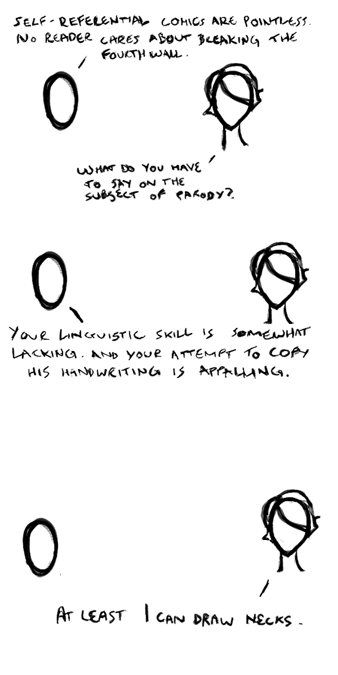 SELF-REFERENTIAL COMICS ARE POINTLESS.
NO READER CARES ABOUT BREAKING THE
FOURTH WALL.
WHAT DO YOU HAVE
TO SAY ON THE
SUBJECT OF PARODY?
YOUR LINGUISTIC SKILL IS SOMEWHAT
LACKING. AND YOUR ATTEMPT TO COPY
HIS HANDWRITING IS APPALLING.
AT LEAST I CAN DRAW NECKS.